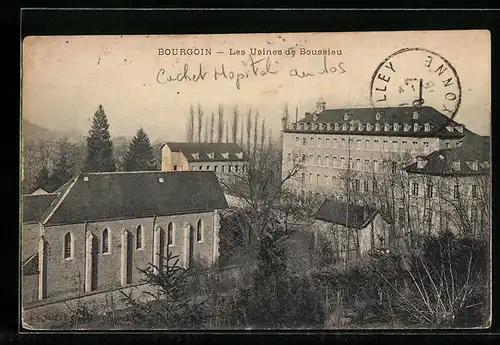 BOURGOIN — Les Usines de Boussieu
Cachet Hôpital au dos
LLEY
XONNE